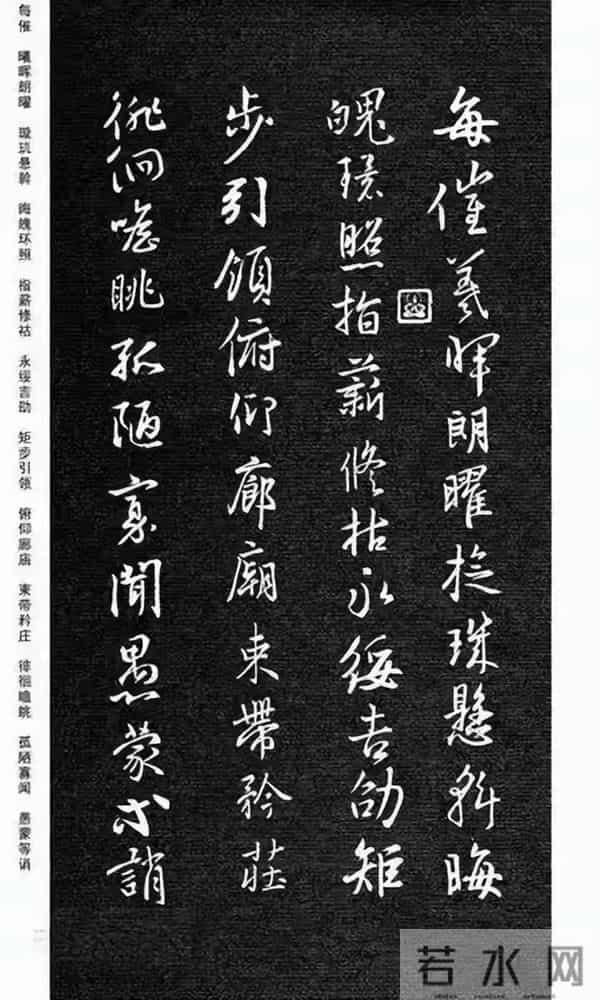 每催羲暉朗曜旋珠懸斡晦
魄環照指薪修祜永綏吉劭矩
步引領俯仰廊廟束帶矜莊
徘徊瞻眺孤陋寡聞愚蒙等誚
每催 曦晖朗曜 璇玑悬斡 晦魄环照 指薪修祜 永绥吉劭 矩步引领 俯仰廊庙 束带矜庄 徘徊瞻眺 孤陋寡闻 愚蒙等诮
若水网